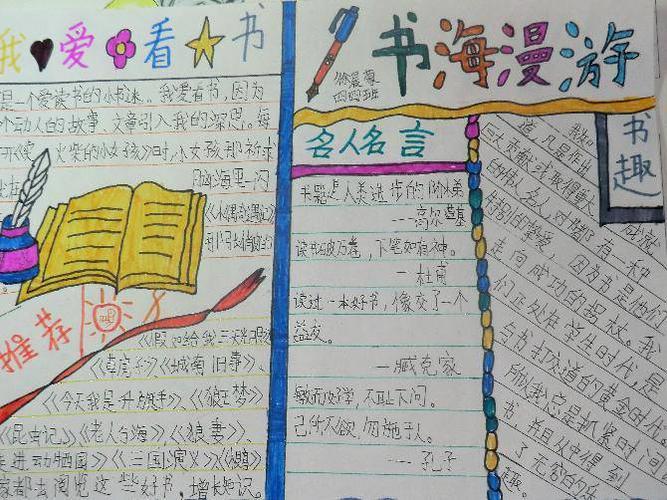 我爱看书
是一个爱读书的小书迷。我爱看书,因为
个动人的故事、文章引入我的深思。每
火柴的小女孩》时,小女孩都祈求
脑海里闪
《木偶奇遇记》
推荐
《假如给我三天光明
《城南旧事》
《今天我是升旗手》《狼王梦》
《昆虫记》《老人与海》《狼妻》
走进动物园》《三国演义》
家都去阅览这些好书,增长知识。
书海漫游
四四班
名人名言
书籍是人类进步的阶梯
---高尔基
读书破万卷,下笔如有神。
—杜甫
读过一本好书,像交了一个
益友。
—臧克家
敏而好学,不耻下问。
己所不欲,勿施于人。
---孔子
书趣
成就
的伟人名人,对书都有一种
特别的挚爱,因为书是他们
走向成功的招牌。我
们正处在学生时代,是
与书打交道的黄金时代
所以我总是抓紧时间
书,并且从中得到
了无穷的乐
趣。